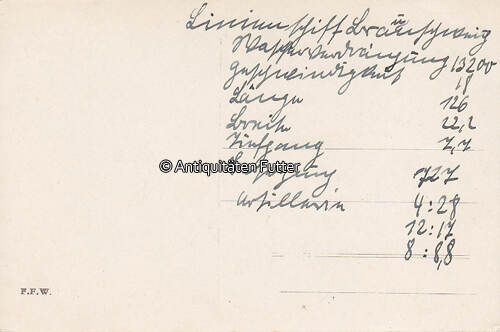 Linienschiff Braunschweig
Wasserverdrängung 13200
Geschwindigkeit 18
Länge 126
Breite 22,2
Tiefgang 7,7
© Antiquitäten Futter
Besatzung 727
Artillerie 4:28
12:17
8:8,8
F.F.W.